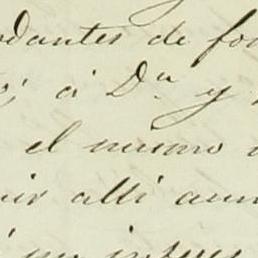 dantes de for
á Dn y
el mismo
ir alli aun